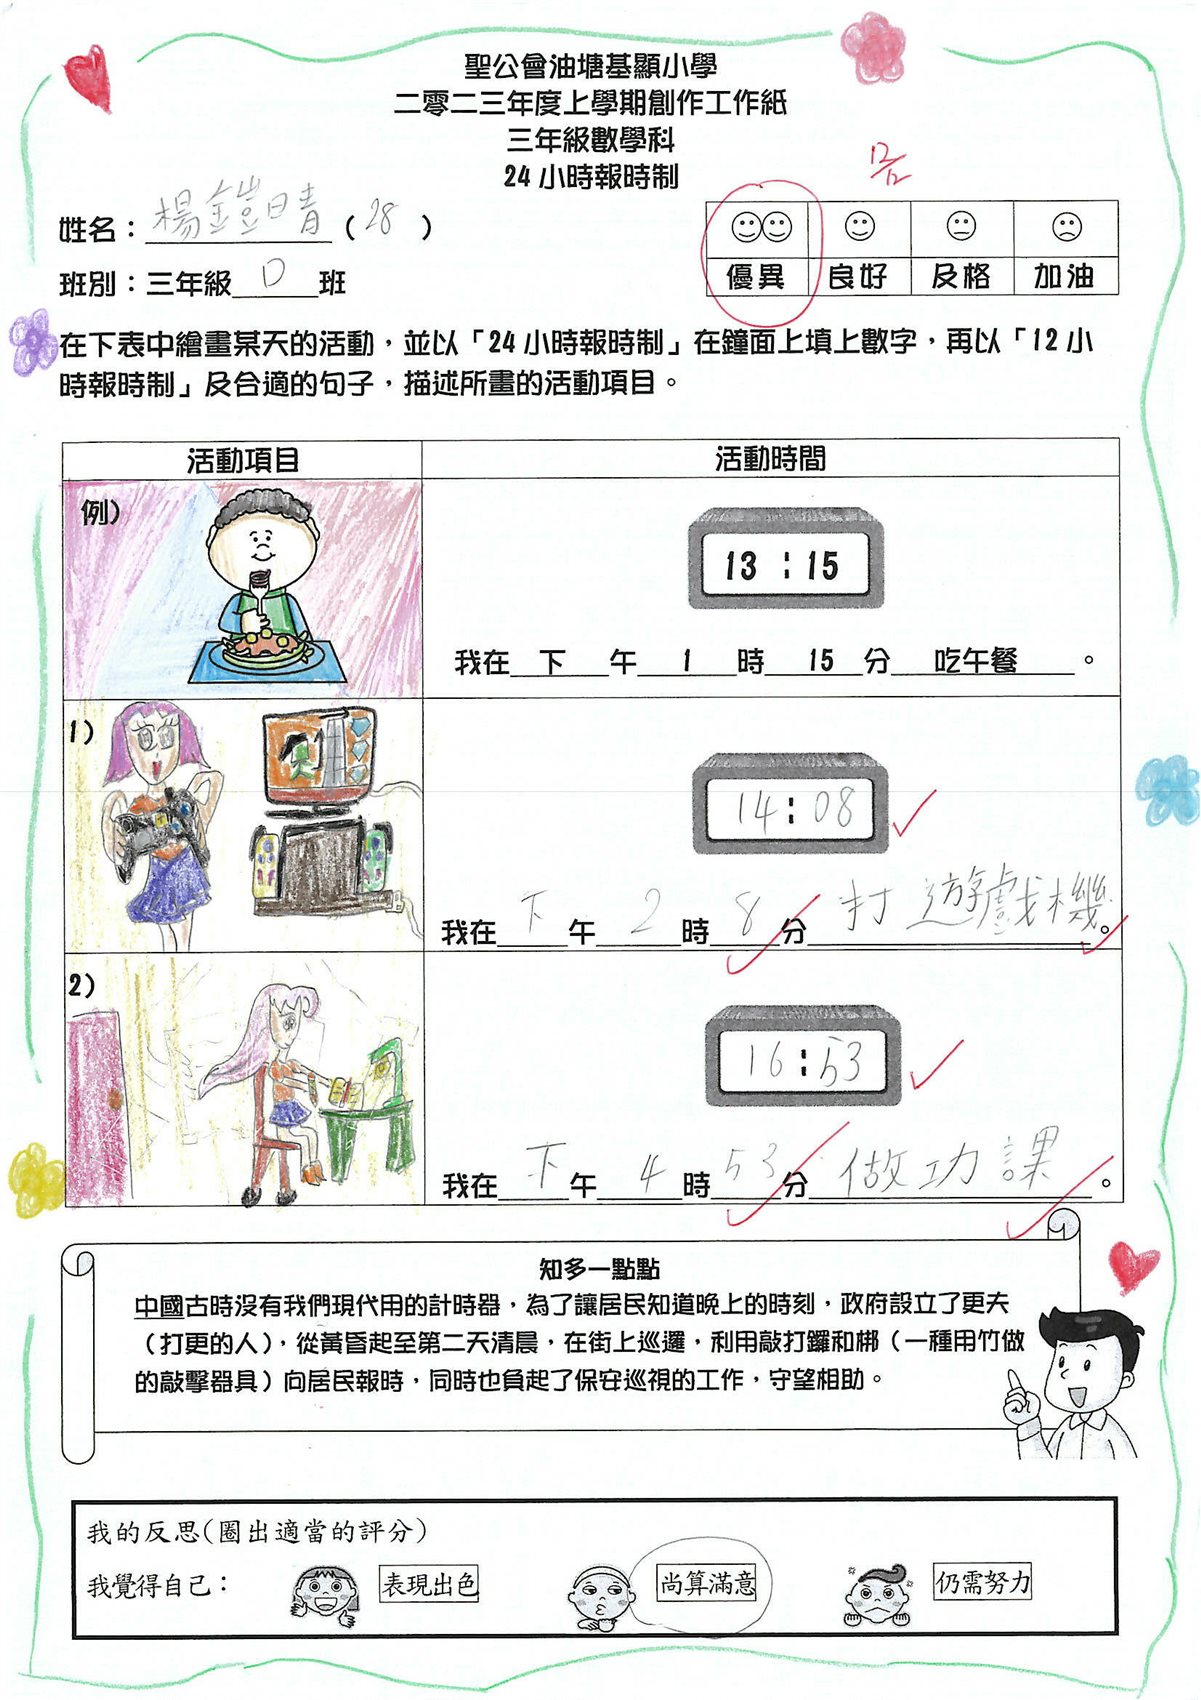 聖公會油塘基顯小學
二零二三年度上學期創作工作紙
三年級數學科
24 小時報時制
12/12
姓名：楊鎧晴（28）
班別：三年級 D 班
優異 良好 及格 加油
在下表中繪畫某天的活動，並以「24 小時報時制」在鐘面上填上數字，再以「12 小
時報時制」及合適的句子，描述所畫的活動項目。
活動項目 活動時間
例）
13：15
我在 下 午 1 時 15 分 吃午餐 。
1）
14：08
我在 下 午 2 時 8 分 打遊戲機。
2）
16：53
我在 下 午 4 時 53 分 做功課 。
知多一點點
中國古時沒有我們現代用的計時器，為了讓居民知道晚上的時刻，政府設立了更夫
（打更的人），從黃昏起至第二天清晨，在街上巡邏，利用敲打鑼和梆（一種用竹做
的敲擊器具）向居民報時，同時也負起了保安巡視的工作，守望相助。
我的反思(圈出適當的評分)
我覺得自己： 表現出色 尚算滿意 仍需努力